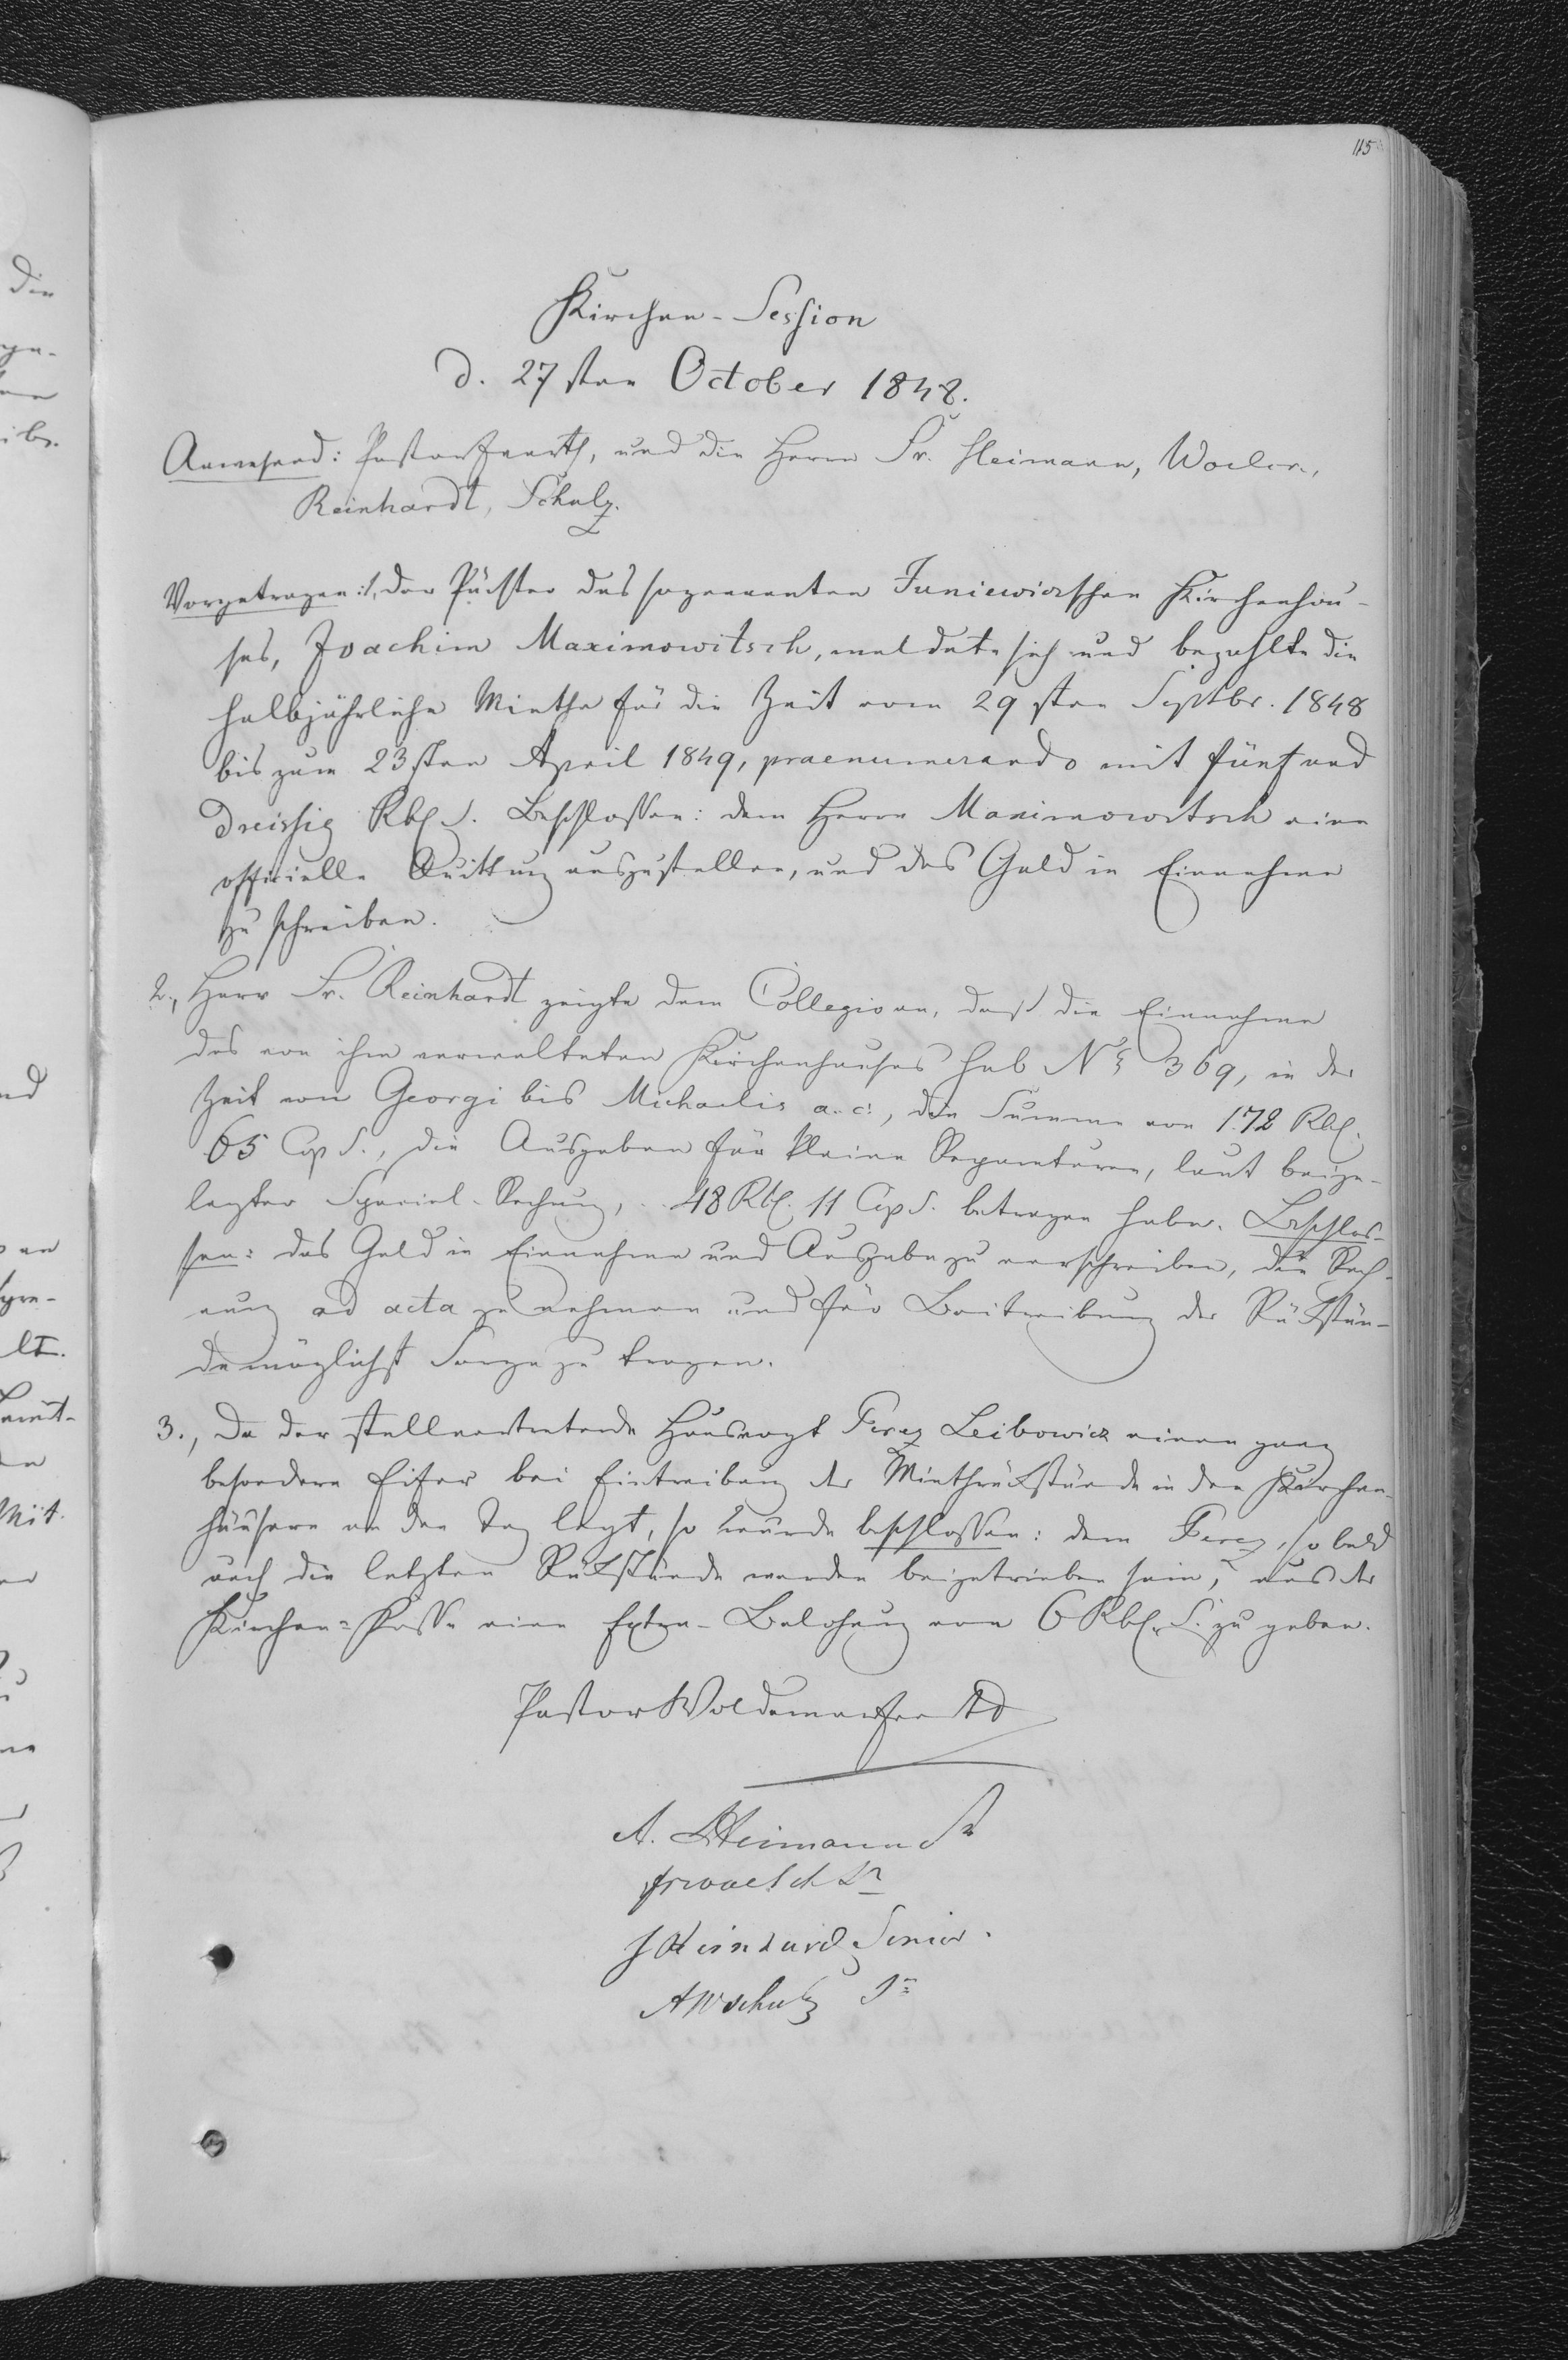 115
Kirchen-Session
d. 27sten October 1848.
Anwesend: Pastor Everth, und die Herrn Sr. Heimann, Woelck,
Reinhardt, Schulz.
Vorgetragen: 1, der Pächter des sogenannten Juniewiczschen Kirchenhau-
ses, Joachim Maximowitsch, meldete sich und bezahlte die
halbjährliche Miethe für die Zeit vom 29sten Septbr. 1848
bis zum 23sten April 1849, praenumerando mit fünf und
dreissig Rbl. S. Beschlossen: dem Herrn Maximowitsch eine
officielle Quittung auszustellen, und das Geld in Einnahme
zu schreiben.
2., Herr Sr. Reinhardt zeigte dem Collegio an, daß die Einnahme
des von ihm verwalteten Kirchenhauses sub No 369, in der
Zeit von Georgi bis Michaelis a. c., die Summe von 172 Rbl.
65 Cop S., die Ausgaben für kleine Reparaturen, laut beige-
legter Special-Rechnung, 48 Rbl. 11 Cop S. betragen habe. Beschlos-
sen: das Geld in Einnahme und Ausgabe zu verschreiben, die Rech-
nung ad acta zu nehmen und für Beitreibung der Rükstän-
de möglichst Sorge zu tragen.
3., Da der stellvertretende Hausvogt Perez Leibowicz einen ganz
besondern Eifer bei Eintreibung der Miethrükstände in den Kirchen-
häusern an den Tag legt, so wurde beschlossen: dem Perez, so bald
auch die letzten Rükstände werden beigetrieben sein, aus der
Kirchen-Kasse eine Extra-Belohnung von 6 Rbl. S. zu geben.
Pastor Woldemar Everth
A. Heimann Sr
Woelck Sr
J Reinhard Senior.
A W Schulz Sr